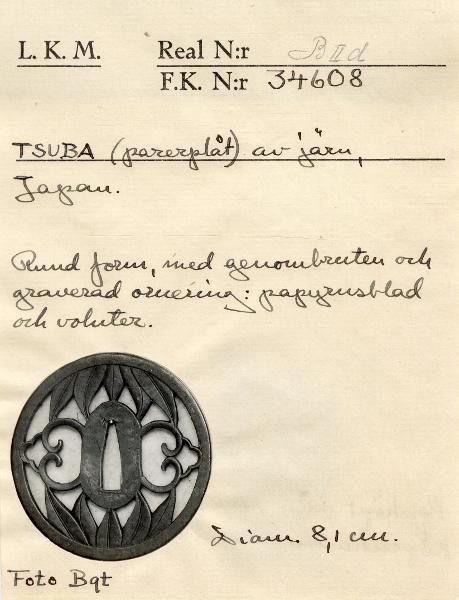 L. K. M. Real N:r B II d
F.K. N:r 34608
TSUBA (parerplåt) av järn,
Japan.
Rund form, med genombruten och
graverad ornering: papyrusblad
och voluter.
Diam. 8,1 cm.
Foto Bgt